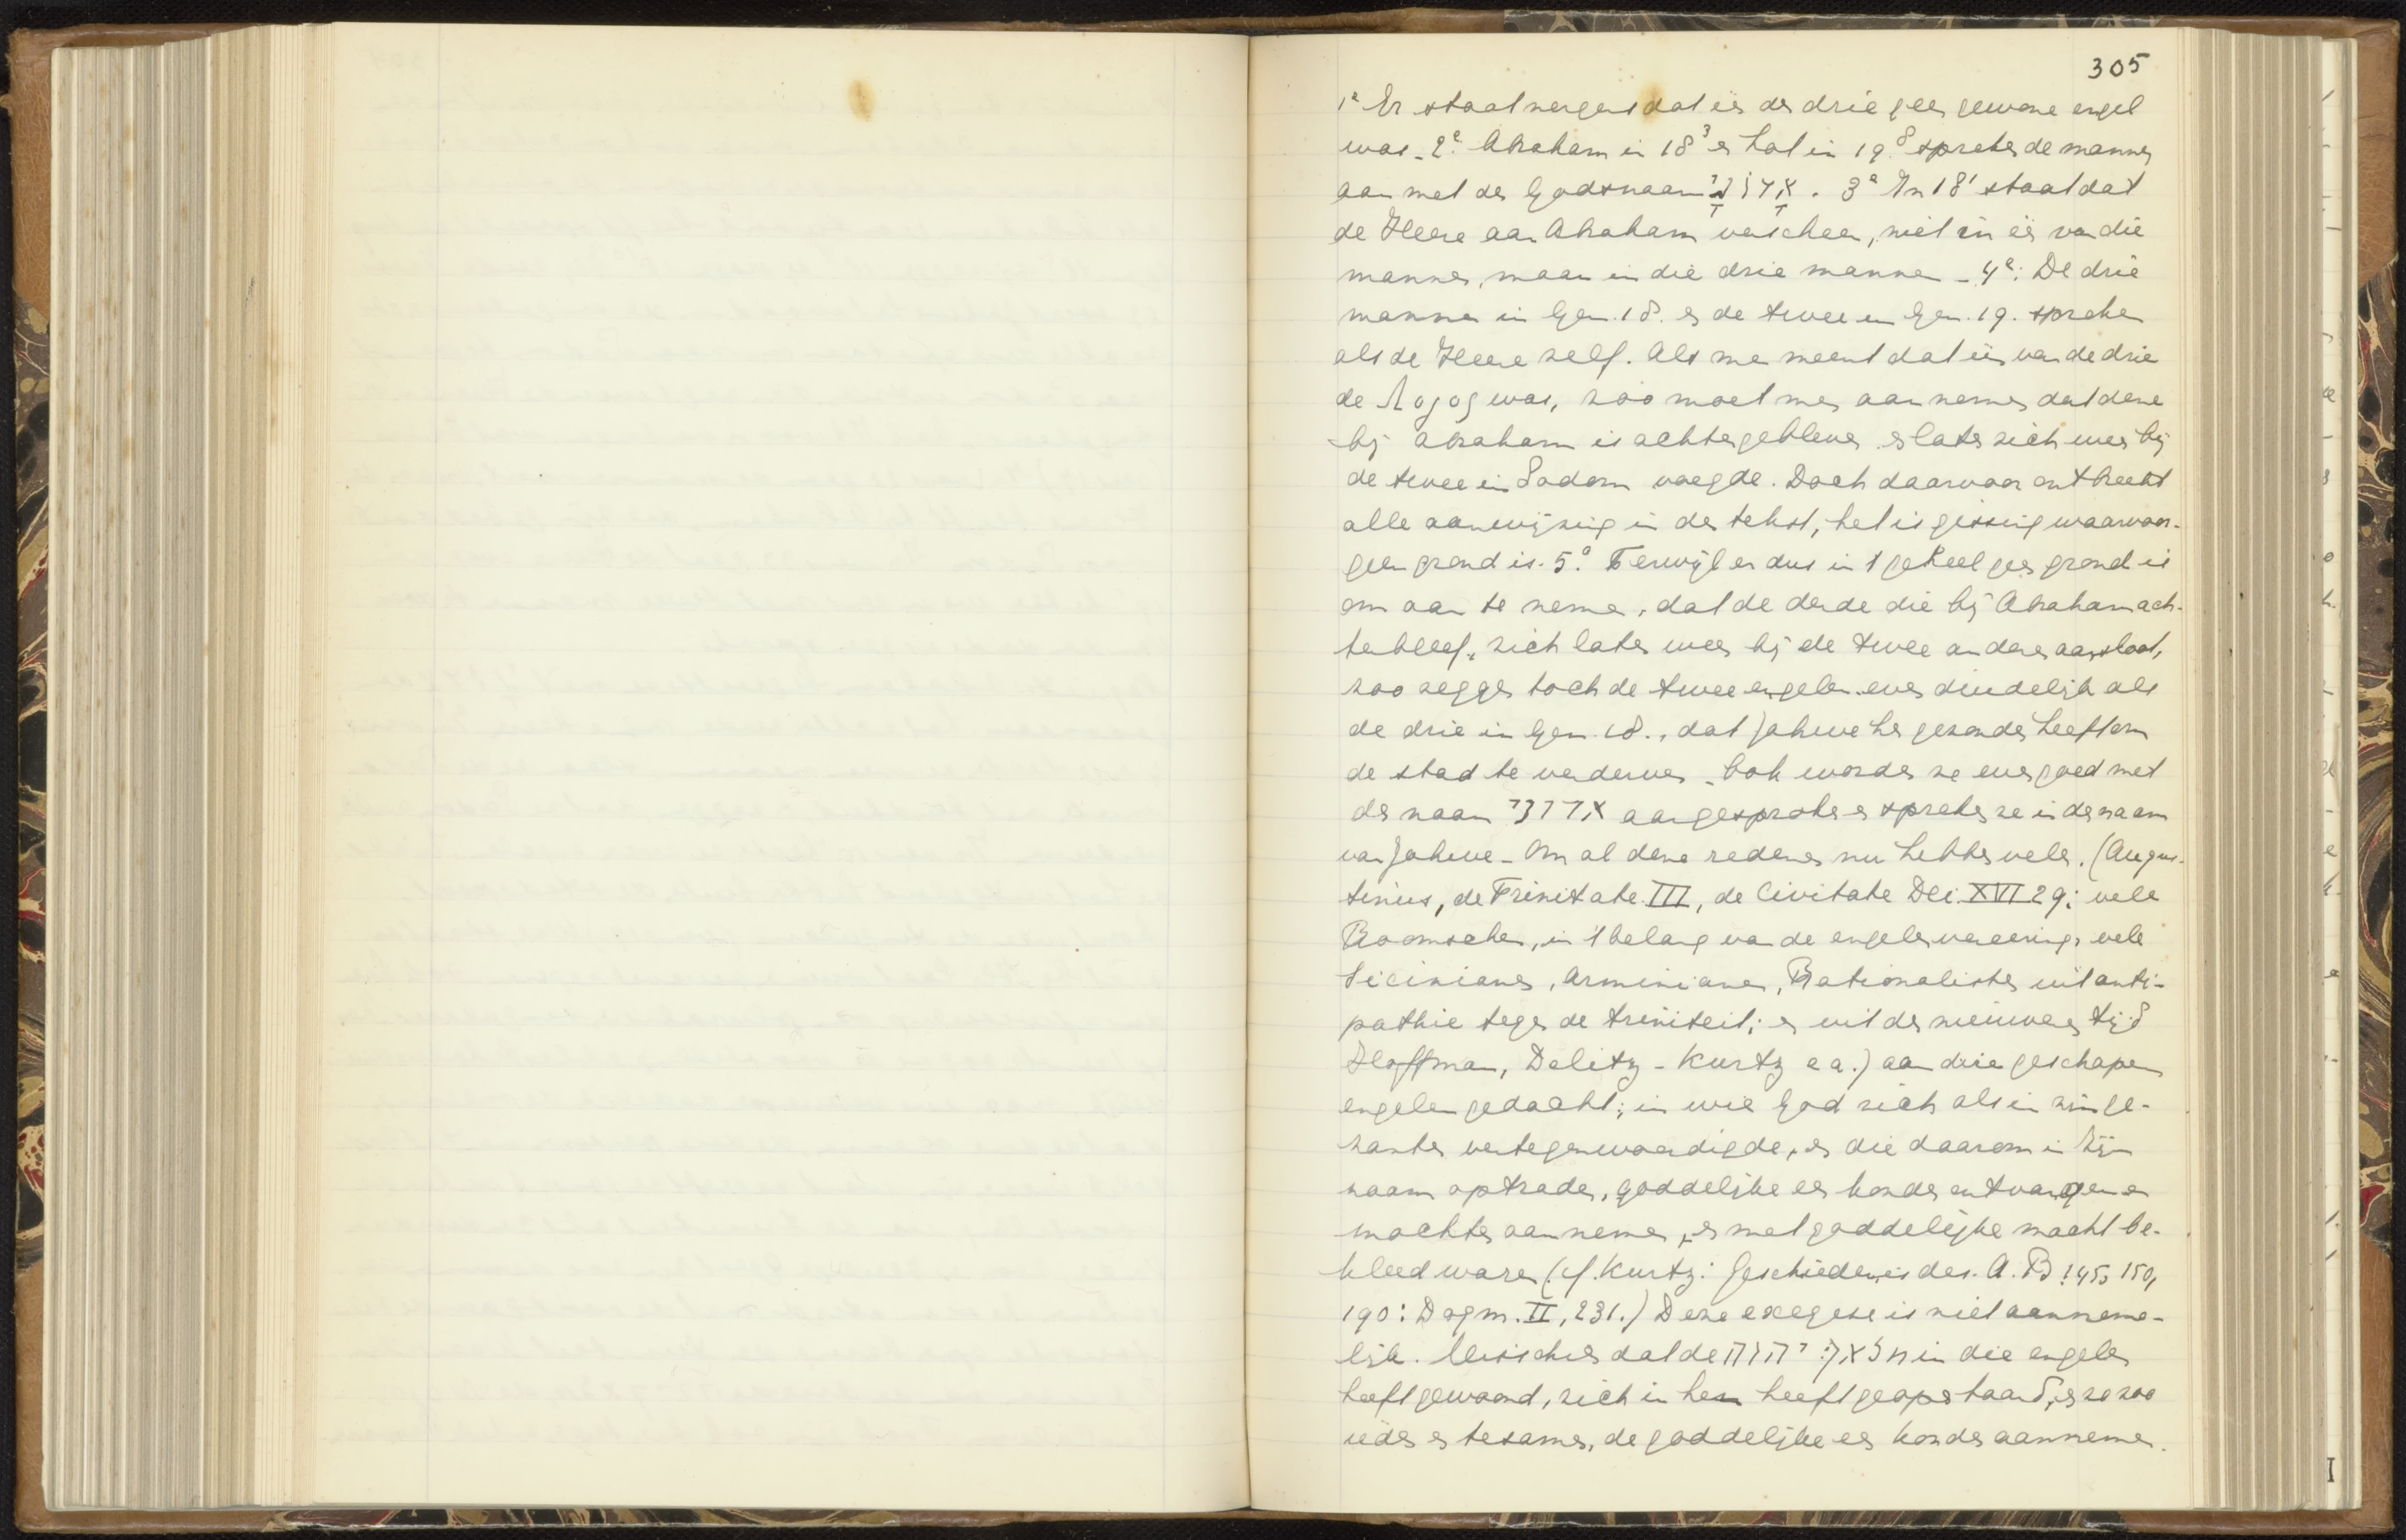 305
1e Er staat nergens dat één der drie geen gewone engel
was. 2e. Abraham in 18³ en Lot in 19⁸ spreken de mannen
aan met den Godsnaam אֲדֹנָי. 3e In 18¹ staat dat
de Heere aan Abraham verscheen, niet in één van die
mannen, maar in die drie mannen. 4e: De drie
mannen in Gen. 18. en de twee in Gen. 19. spreken
als de Heere zelf. Als men meent dat één van de drie
de Λογος was, zoo moet men aannemen dat deze
bij Abraham is achtergebleven en later zich weer bij
de twee in Sodom voegde. Doch daarvoor ontbreekt
alle aanwijzing in den tekst, het is gissing waarvoor-
geen grond is. 5e. Terwijl er dus in 't geheel geen grond is
om aan te nemen, dat de derde die bij Abraham ach-
terbleef, zich later weer bij de twee anderen aansloot,
zoo zeggen toch de twee engelen even duidelijk als
de drie in Gen. 18., dat Jahwe hen gezonden heeft om
de stad te verderven. Ook worden ze even goed met
den naam אדני aangesproken en spreken ze in den naam
van Jahwe. Om al deze redenen nu hebben velen. (Augus-
tinus, de Trinitate III, de Civitate Dei XVI 29; vele
Roomschen, in 't belang van de engelenvereering, vele
Sicinianen, Arminianen, Rationalisten uit anti-
pathie tegen de triniteit; en uit den nieuweren tijd
Hoffman, Delitz - Kurtz e a.) aan drie geschapen
engelen gedacht; in wie God zich als in zijn ge-
zanten vertegenwoordigde, en die daarom in Zijn
naam optraden, goddelijke eer konden ontvangen en
mochten aannemen, en met goddelijke macht be-
kleed waren (cf. Kurtz: Geschiedenis des. A. B 145, 150,
190: Dogm. II, 231.) Deze exegese is niet aanneme-
lijk. Misschien dat de מלאך יהוה in die engelen
heeft gewoond, zich in hen heeft geopenbaard, en zoo
ieder en tesamen, de goddelijke eer konden aannemen.